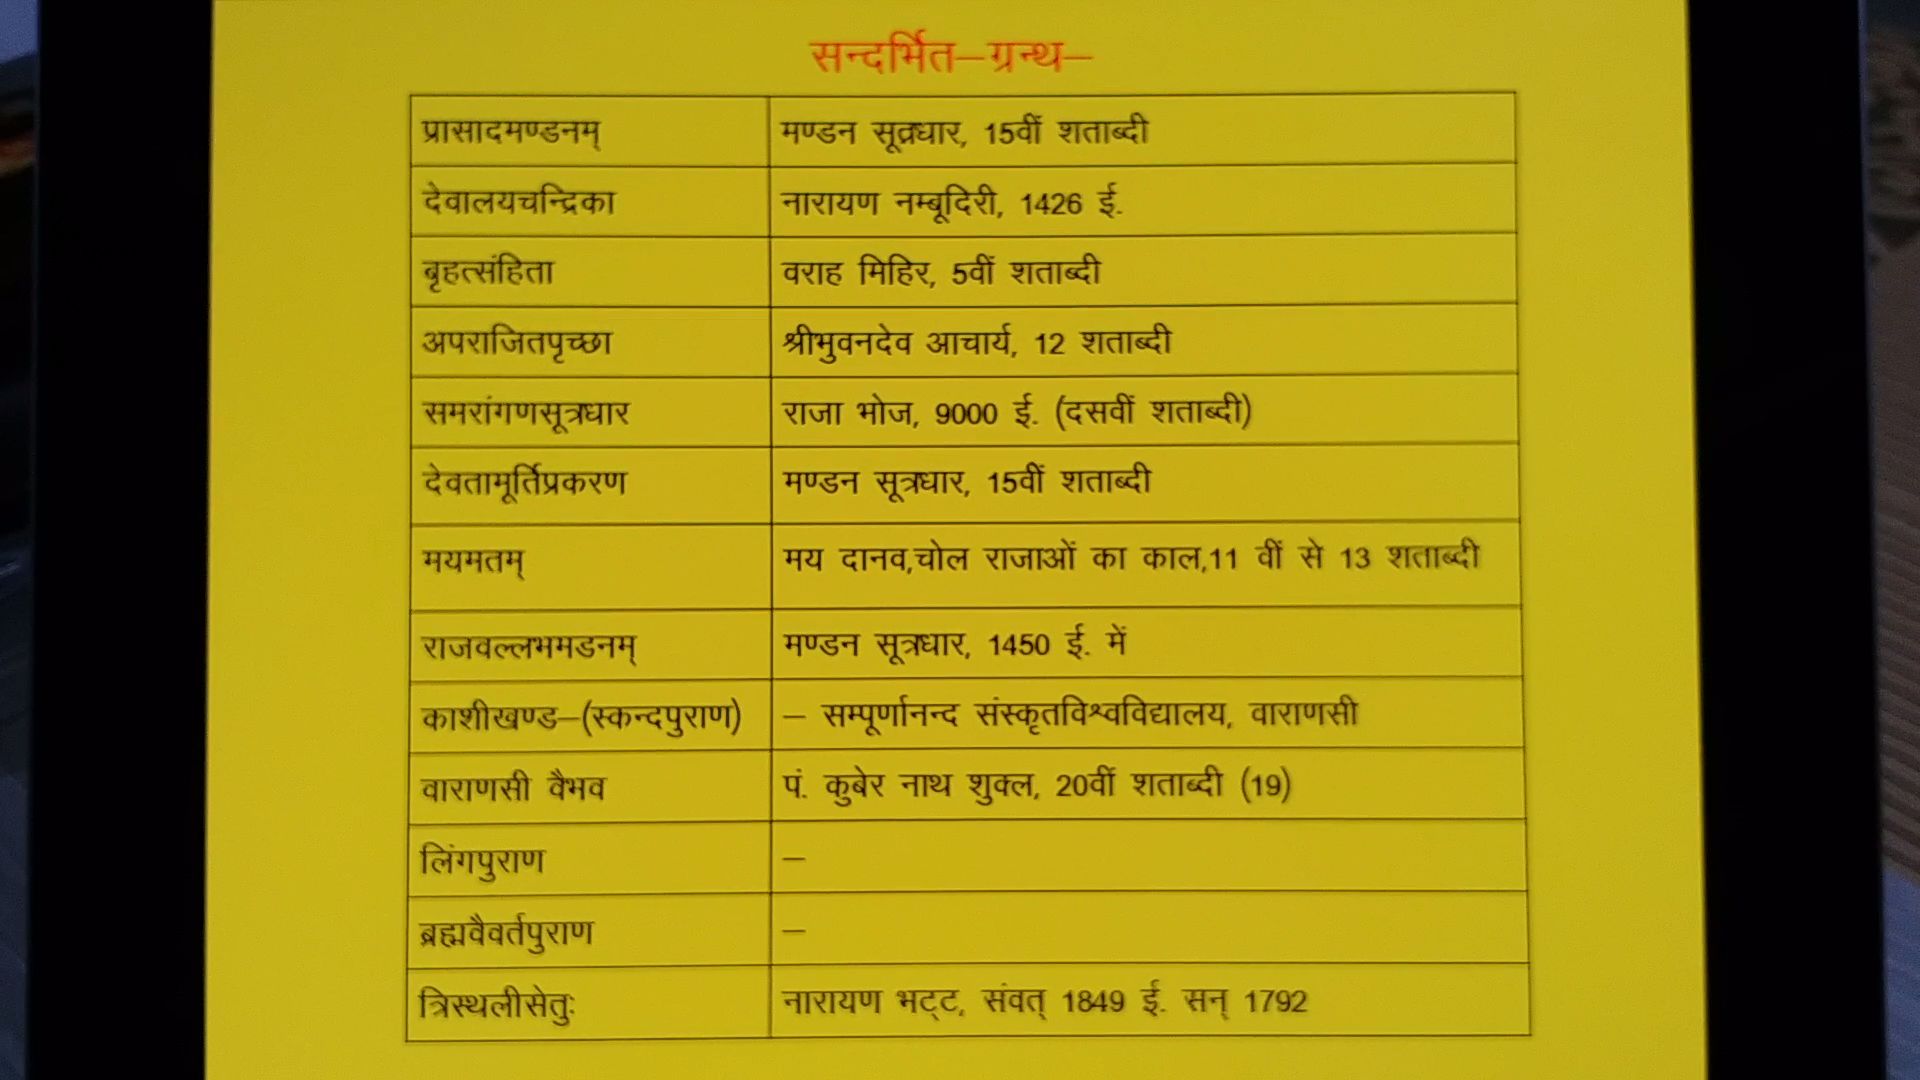 सन्दर्भित–ग्रन्थ–
प्रासादमण्डनम् मण्डन सूत्रधार, 15वीं शताब्दी
देवालयचन्द्रिका नारायण नम्बूदिरी, 1426 ई.
बृहत्संहिता वराह मिहिर, 5वीं शताब्दी
अपराजितपृच्छा श्रीभुवनदेव आचार्य, 12 शताब्दी
समरांगणसूत्रधार राजा भोज, 9000 ई. (दसवीं शताब्दी)
देवतामूर्तिप्रकरण मण्डन सूत्रधार, 15वीं शताब्दी
मयमतम् मय दानव,चोल राजाओं का काल,11 वीं से 13 शताब्दी
राजवल्लभमडनम् मण्डन सूत्रधार, 1450 ई. में
काशीखण्ड–(स्कन्दपुराण) – सम्पूर्णानन्द संस्कृतविश्वविद्यालय, वाराणसी
वाराणसी वैभव पं. कुबेर नाथ शुक्ल, 20वीं शताब्दी (19)
लिंगपुराण –
ब्रह्मवैवर्तपुराण –
त्रिस्थलीसेतुः नारायण भट्ट, संवत् 1849 ई. सन् 1792